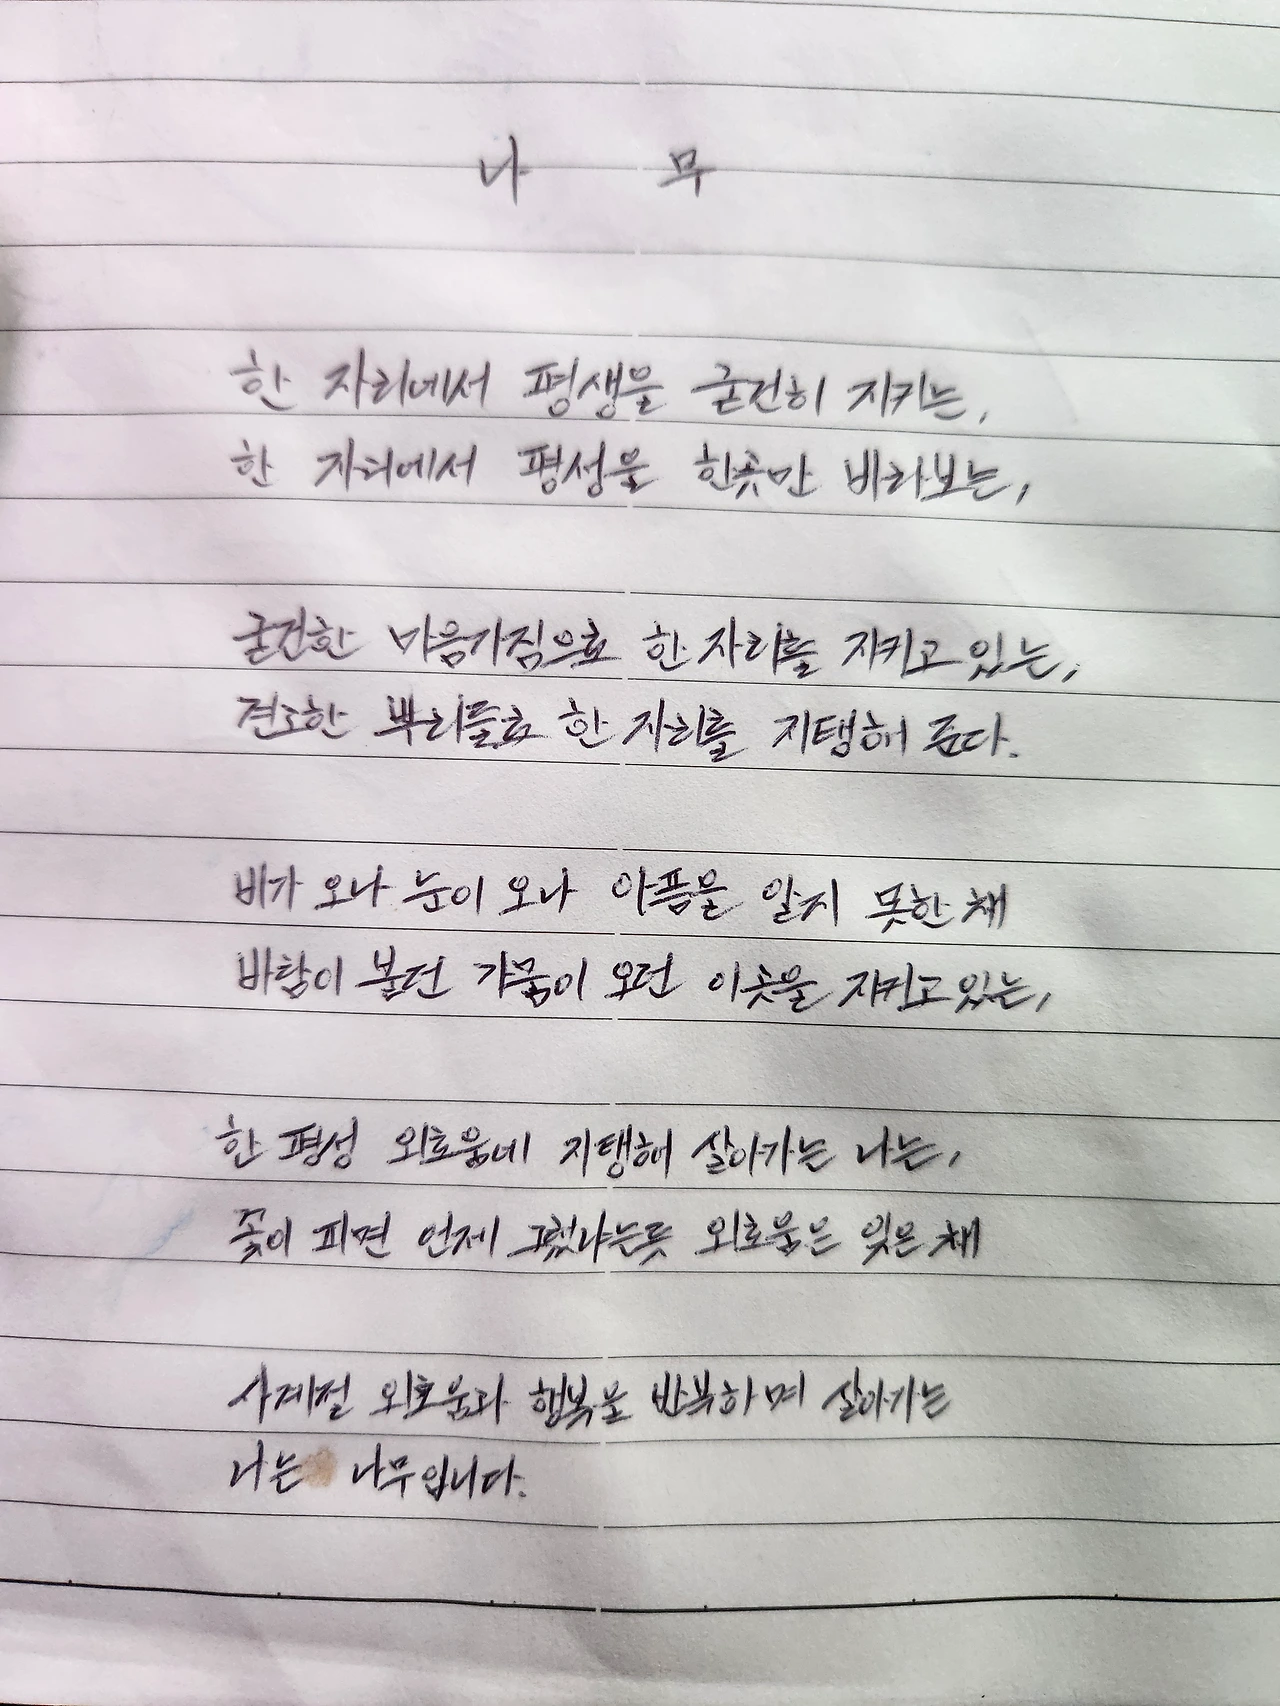 나 무
한 자리에서 평생을 굳건히 지키는,
한 자리에서 평생을 한곳만 바라보는,
굳건한 마음가짐으로 한 자리를 지키고 있는,
견고한 뿌리들로 한 자리를 지탱해 준다.
비가 오나 눈이 오나 아픔을 알지 못한 채
바람이 불던 가뭄이 오던 이곳을 지키고 있는,
한 평생 외로움에 지탱해 살아가는 나는,
꽃이 피면 언제 그랬냐는듯 외로움은 잊은 채
사계절 외로움과 행복을 반복하며 살아가는
나는 나무입니다.